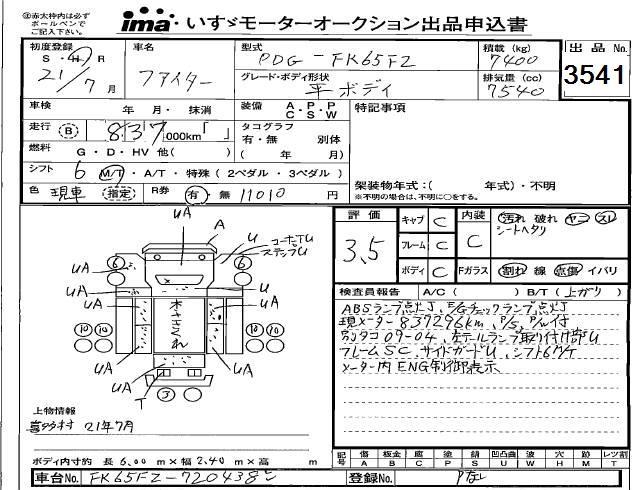 ※赤太枠内は必ず
ボールペンで
ご記入下さい。
ima いすゞモーターオークション出品申込書
初度登録 S・H・R
21/7月
車名
ファイター
型式
PDG-FK65FZ
グレード・ボディ形状
平ボディ
積載(kg)
7400
排気量(cc)
7540
出品No.
3541
車検 年 月・ 抹消
装備 A・P・P C・S・W
特記事項
走行 B 837,000km「 」
タコグラフ
有・無 別体
( 年 月)
燃料 G・D・HV 他( )
シフト 6 M/T・A/T・特殊(2ペダル・3ペダル)
架装物年式:( 年式)・不明
※不明の場合は、不明に○をする。
色 現車 (指定) R券 有・無 11010 円
評価
3.5
キャブ C
フレーム C
ボディ C
内装 C
汚れ 破れ ヤニ スレ
シートヘタリ
Fガラス 割れ 線 点傷 イバリ
検査員報告 A/C( ) B/T(上がり)
ABSランプ点灯、E/Gチェックランプ点灯
現メーター837296km、P/S、P/W付
フレームSC、サイドガードU、シフト6
メーター内ENG制御表示
UA
A
U
コーナーTU
ステップU
6
UA
UA
6
U
木ささくれ
10 10
10 10
UA
UA
UA
T
3
上物情報
21年7月
ボディ内寸 約 長 6.00 m × 幅 2.40 m × 高 m
記号 傷A 板金B 腐C 塗P 錆S 凹凸曲U 波W 穴H 跡M レツ割T
車台No. FK65FZ-720438
登録No. Pなし